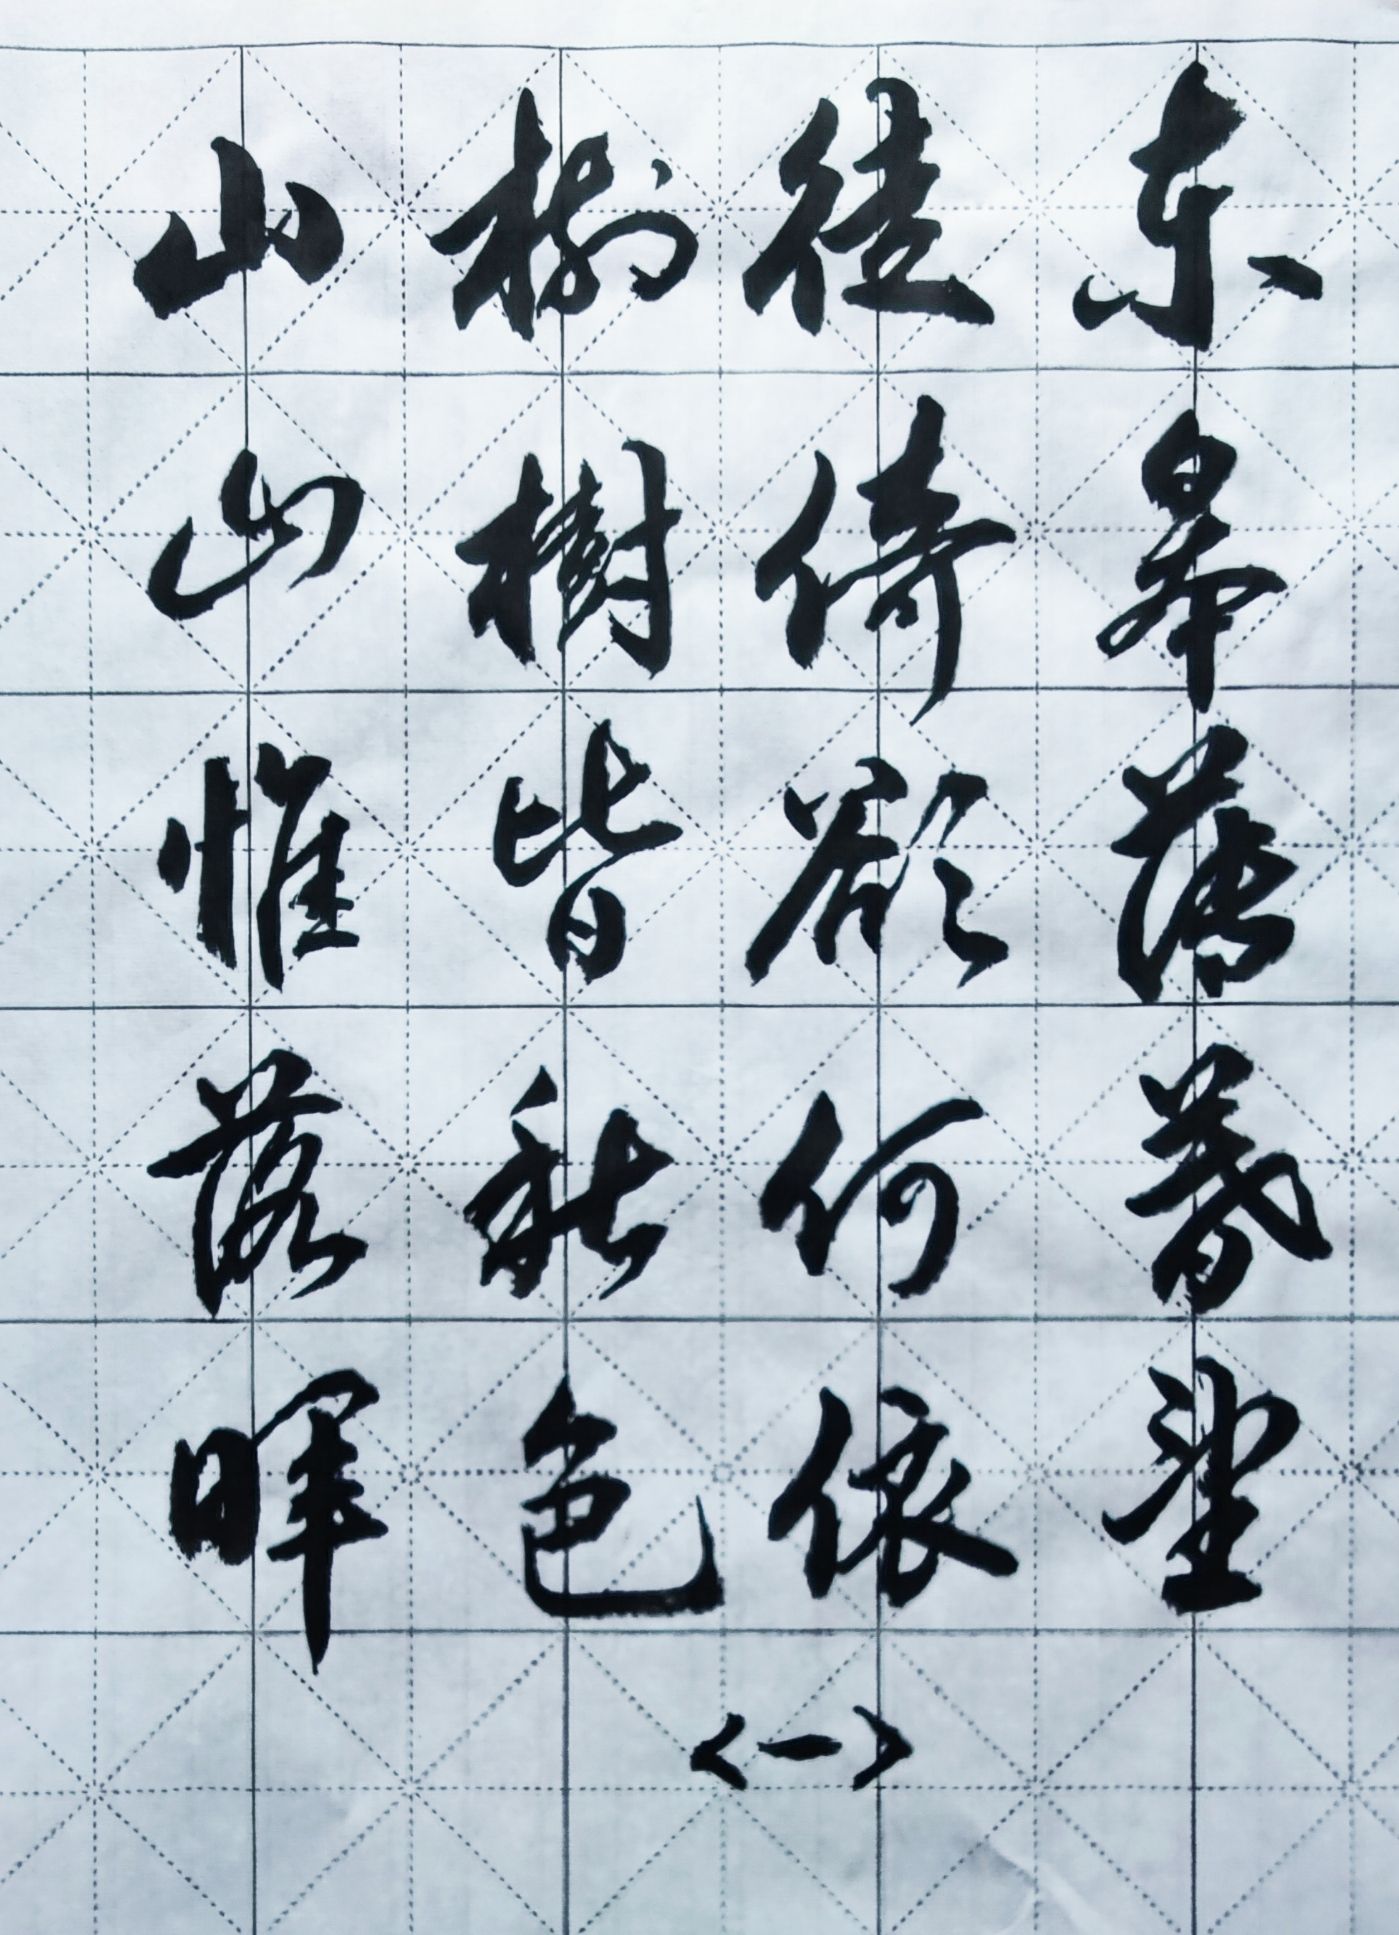 东皋薄暮望
徙倚欲何依
樹樹皆秋色
山山惟落暉
<一>